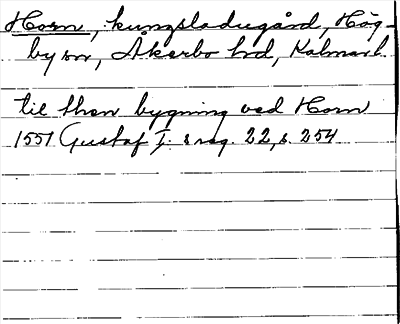 Horn, kungsladugård, Hög-
by sn, Åkerbo hd, Kalmar l.
til then bygning ved Horn
1551 Gustaf I:s reg. 22, s. 254